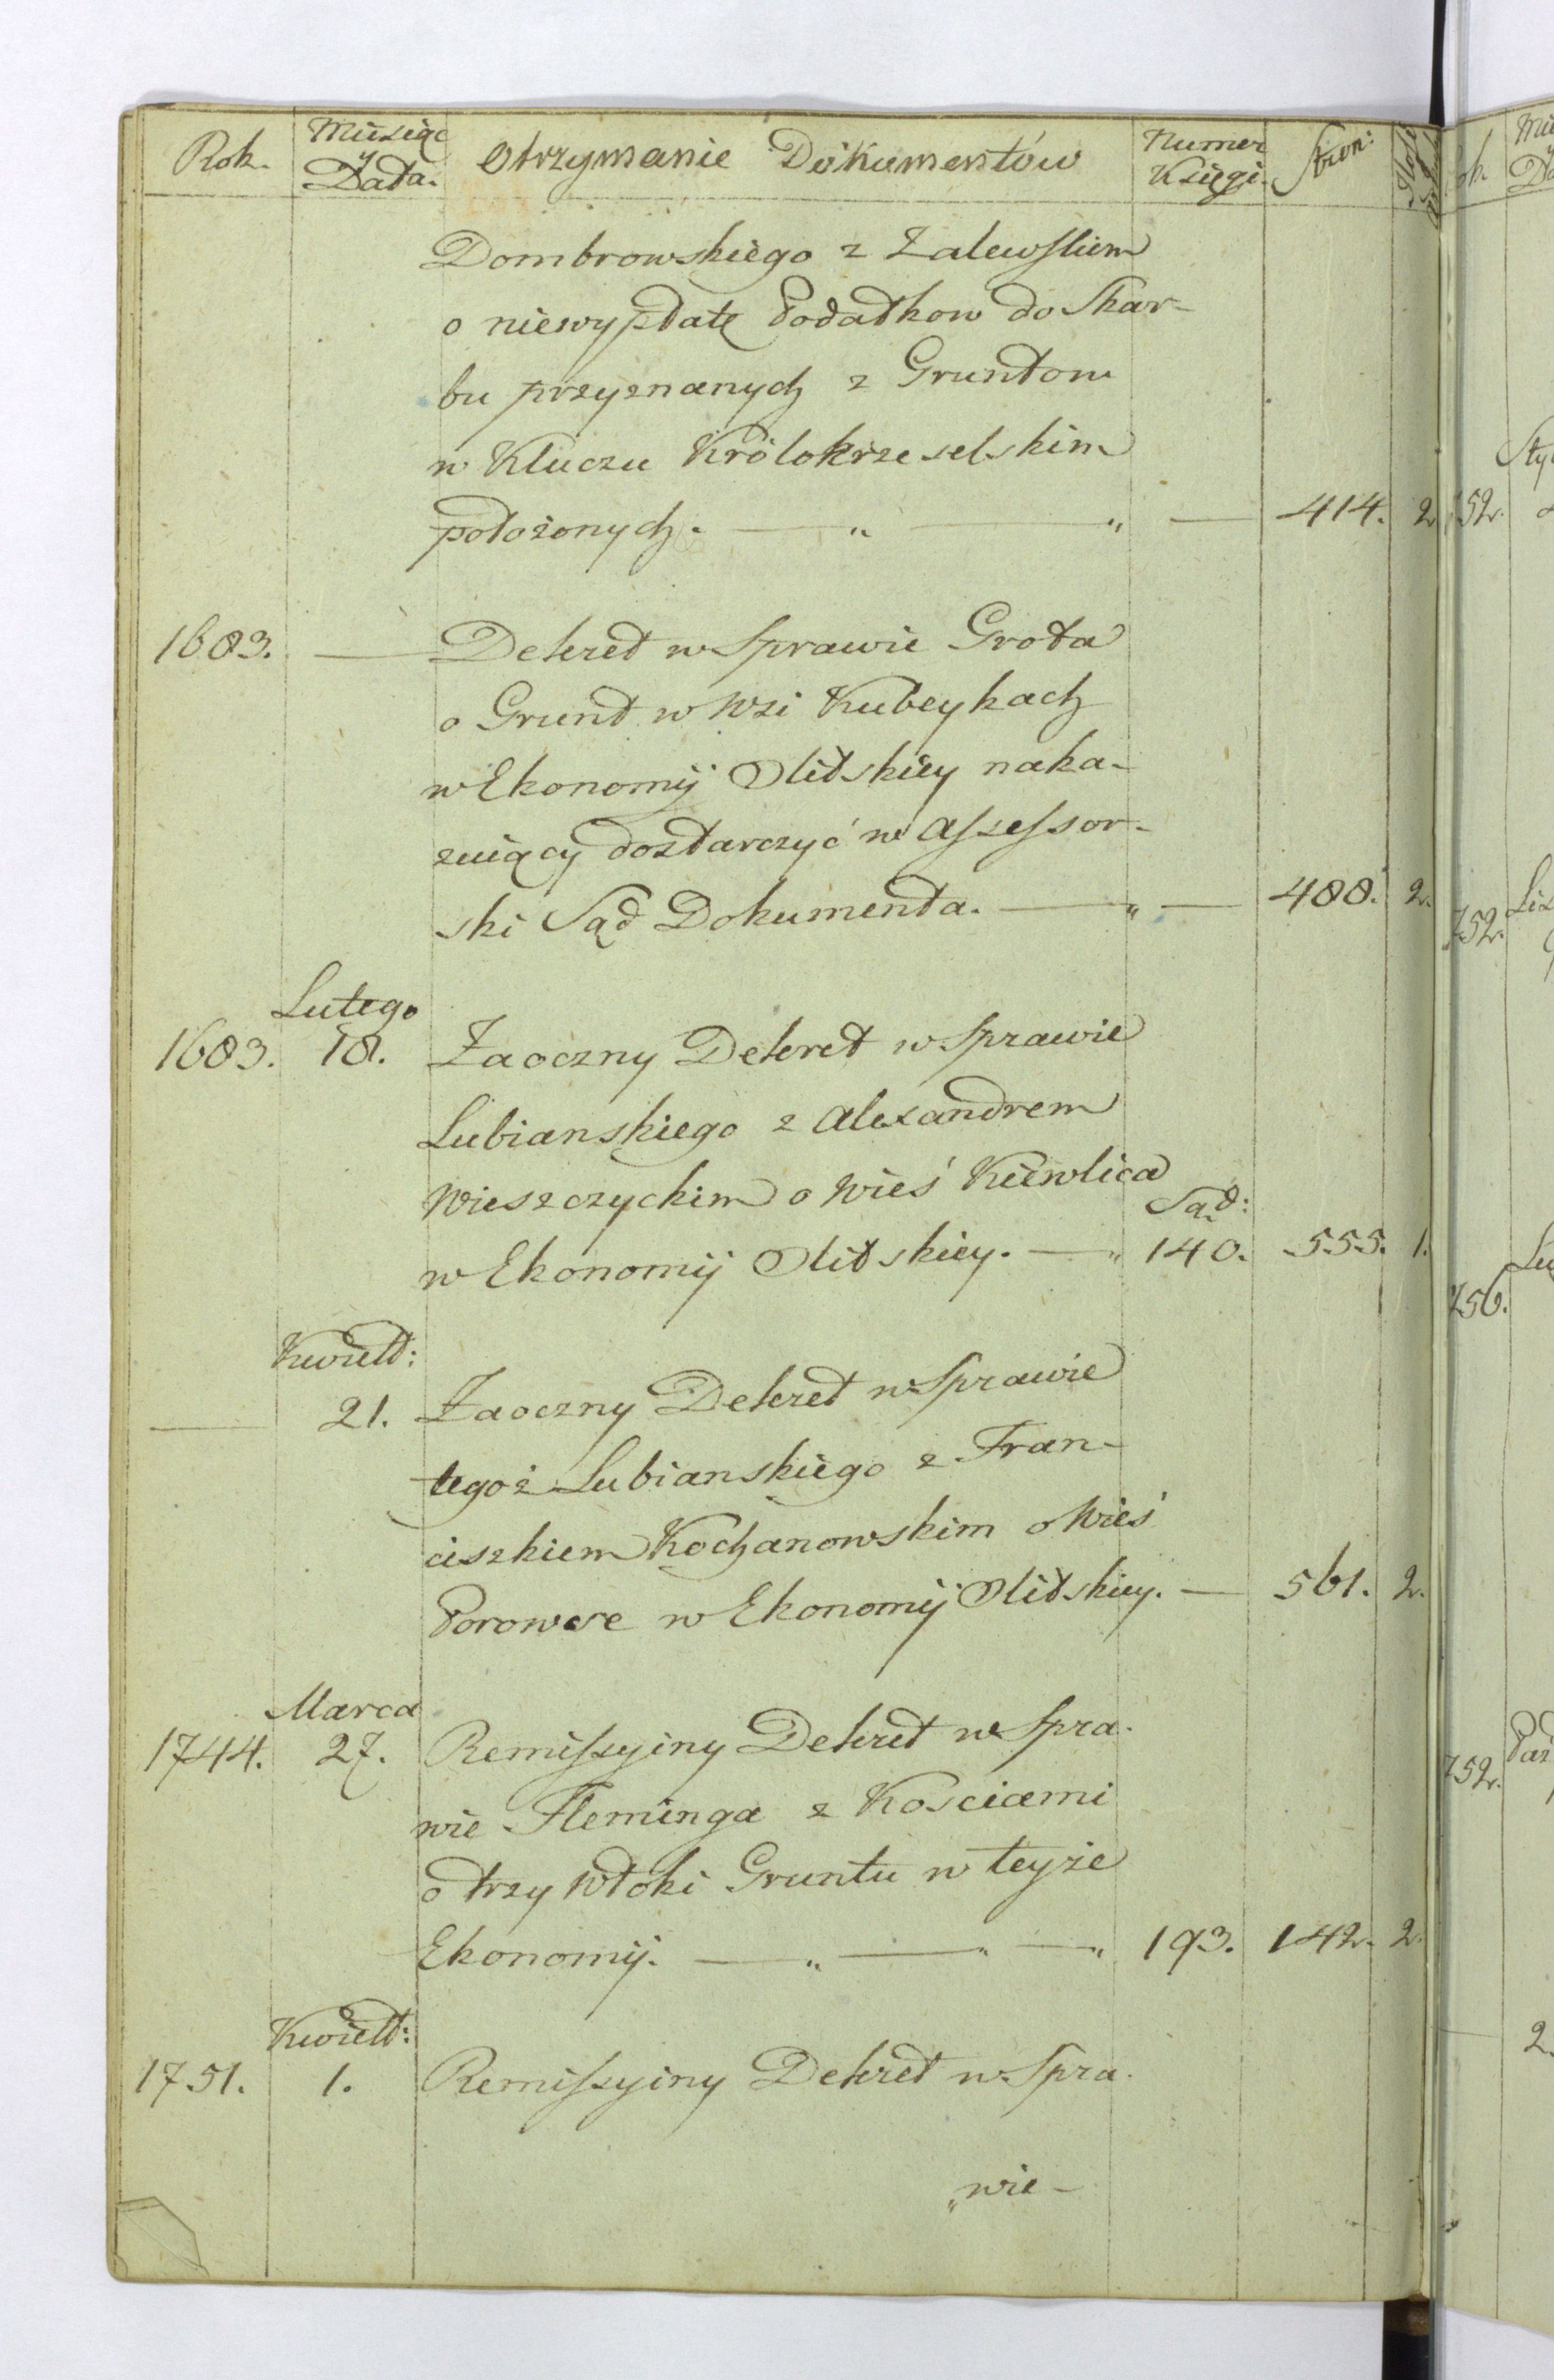 Rok. Miesiąc y Data. Otrzymanie Dokumentów Numer Księgi. Stron:
Dombrowskiego z Zalewskiem
o niewypłatę Podatkow do Skar-
bu przyznanych z Gruntom
w Kluczu Królokrzeselskim
położonych. — „ „ — 414. 2
1683. — Dekret w Sprawie Grota
o Grunt w Wsi Kubeykach
w Ekonomij Olitskiey naka-
zuiący dostarczyć w Assessor-
ski Sąd Dokumenta. — „ — 488. 2.
Lutego
1683. 18. Zaoczny Dekret w Sprawie
Lubianskiego z Alexandrem
Wieszczyckim o Wieś Kiewlica
Sąd:
w Ekonomij Olitskiey. — „ 140. 555. 1.
Kwiet:
— 21. Zaoczny Dekret w Sprawie
tegoż Lubianskiego z Fran-
ciszkiem Kochanowskim o Wieś
Porowcze w Ekonomij Olitskiey. — 561. 2.
Marca
1744. 27. Remissyiny Dekret w Spra-
wie Fleminga z Kosciami
o trzy Włoki Gruntu w teyże
Ekonomij. — „ — „ — „ 193. 142. 2.
Kwiet:
1751. 1. Remissyiny Dekret w Spra-
„wie -